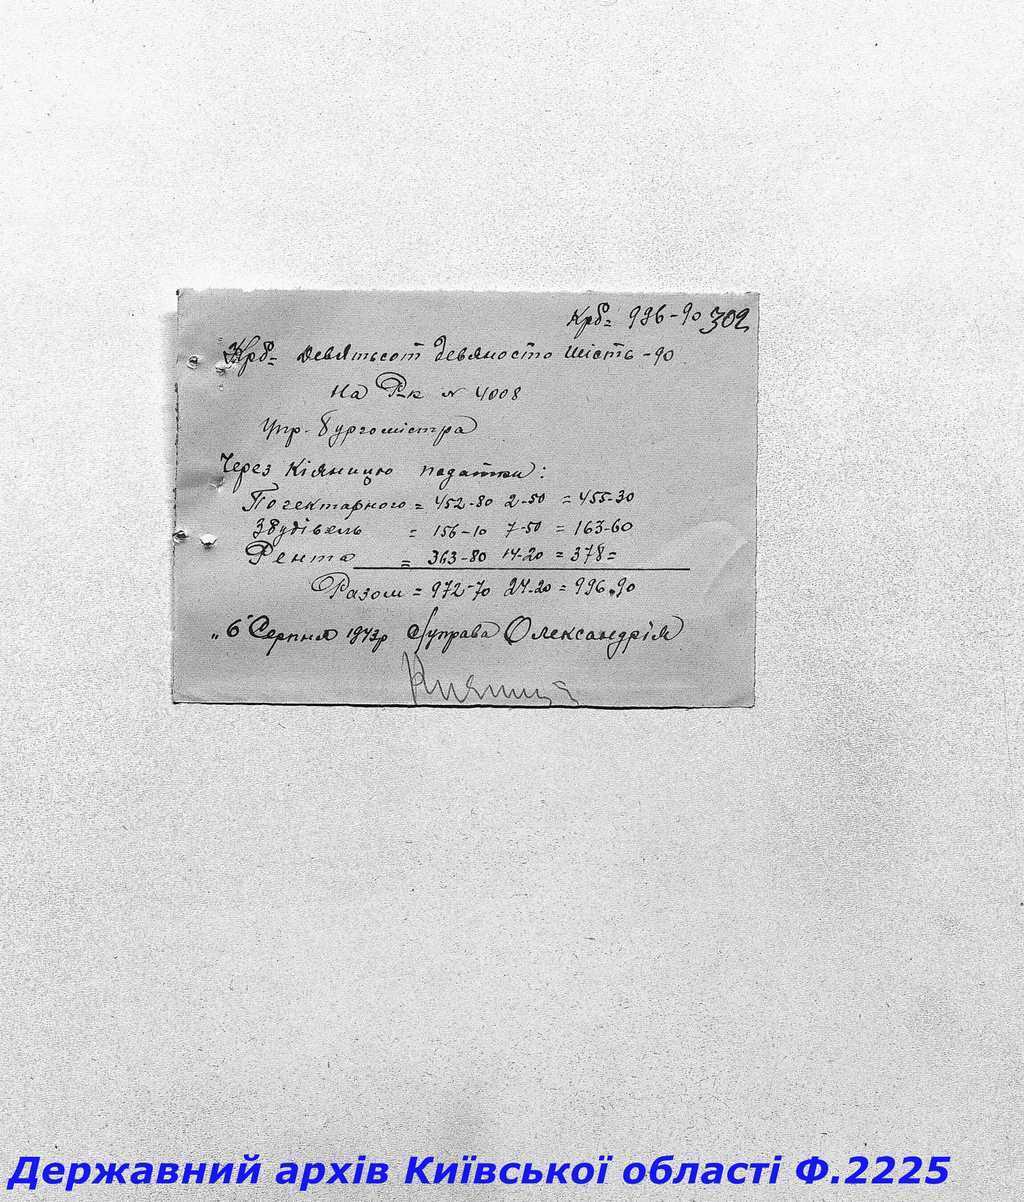 Крб= 996-90 302
Крб= девятьсот девяносто шість -90
На Р-к № 4008
Упр. Бургомістра
Через Кіяницю податки:
Погектарного = 452-80 2-50 = 455-30
З будівель = 156-10 7-50 = 163-60
Рента = 363-80 14-20 = 378=
Разом = 972-70 24-20 = 996.90
"6" Серпня 1943р С/управа Олександрія
Кияниця
Державний архів Київської області Ф.2225